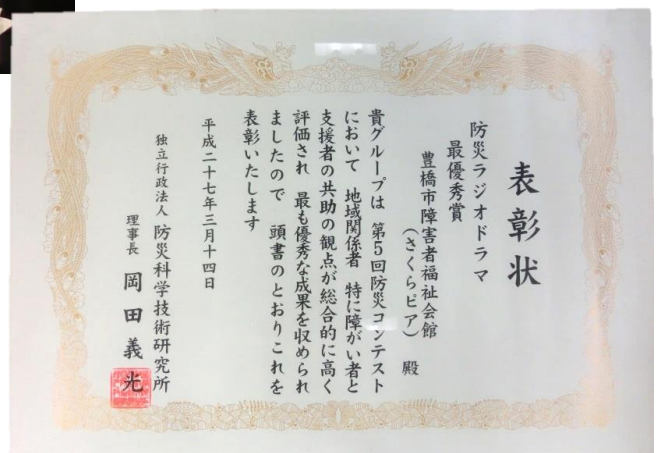 表彰状
防災ラジオドラマ
最優秀賞
豊橋市障害者福祉会館
(さくらピア) 殿
貴グループは 第5回防災コンテスト
において 地域関係者 特に障がい者と
支援者の共助の観点が総合的に高く
評価され 最も優秀な成果を収められ
ましたので 頭書のとおりこれを
表彰いたします
平成二十七年三月十四日
独立行政法人 防災科学技術研究所
理事長 岡田義光